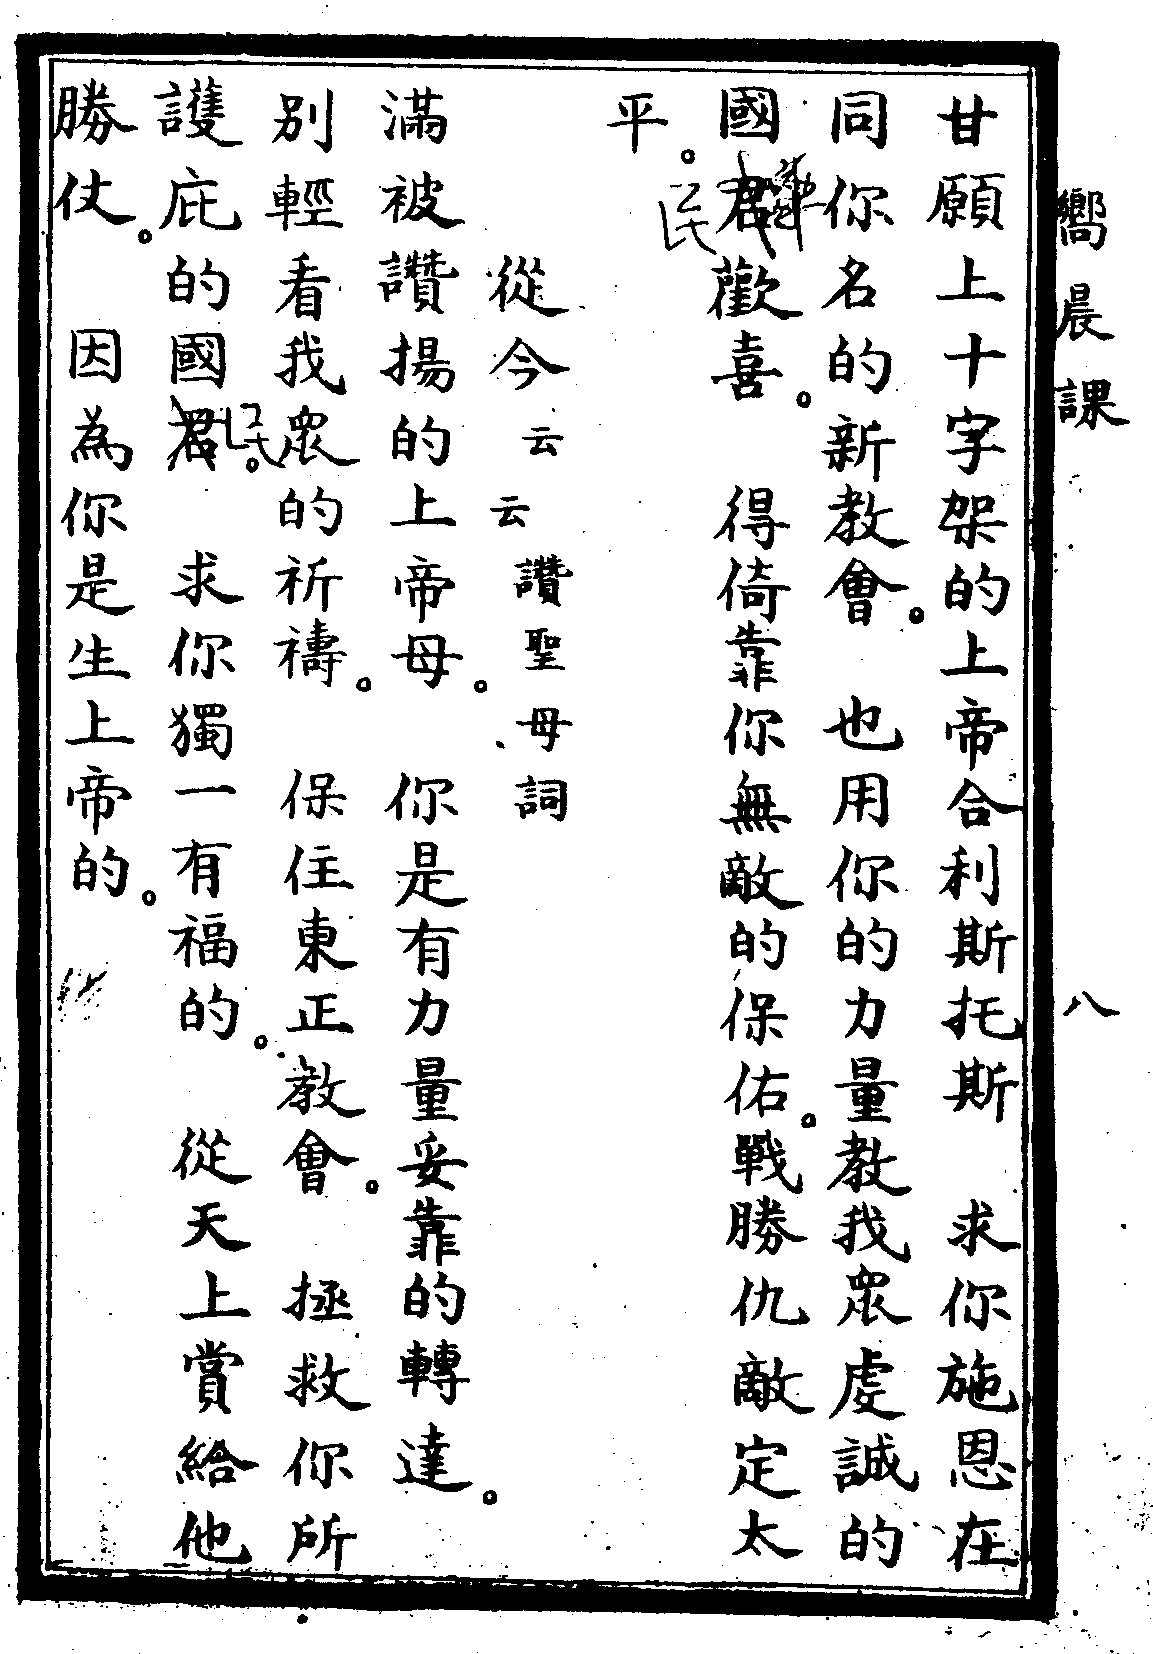 嚮晨課 八
甘願上十字架的上帝合利斯托斯 求你施恩在
同你名的新教會。 也用你的力量教我眾虔誠的
國君歡喜。 得倚靠你無敵的保佑。戰勝仇敵定太
民
平。
從今云云讚聖母詞
滿被讚揚的上帝母。 你是有力量妥靠的轉達。
別輕看我眾的祈禱。 保住東正教會。 拯救你所
民
護庇的國君。 求你獨一有福的。 從天上賞給他
勝仗。 因為你是生上帝的。